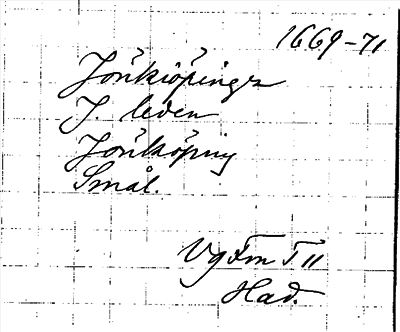 1669-71
Jönkiöpings
J. leden
Jönköping
Smål.
VgFm T II
Had.